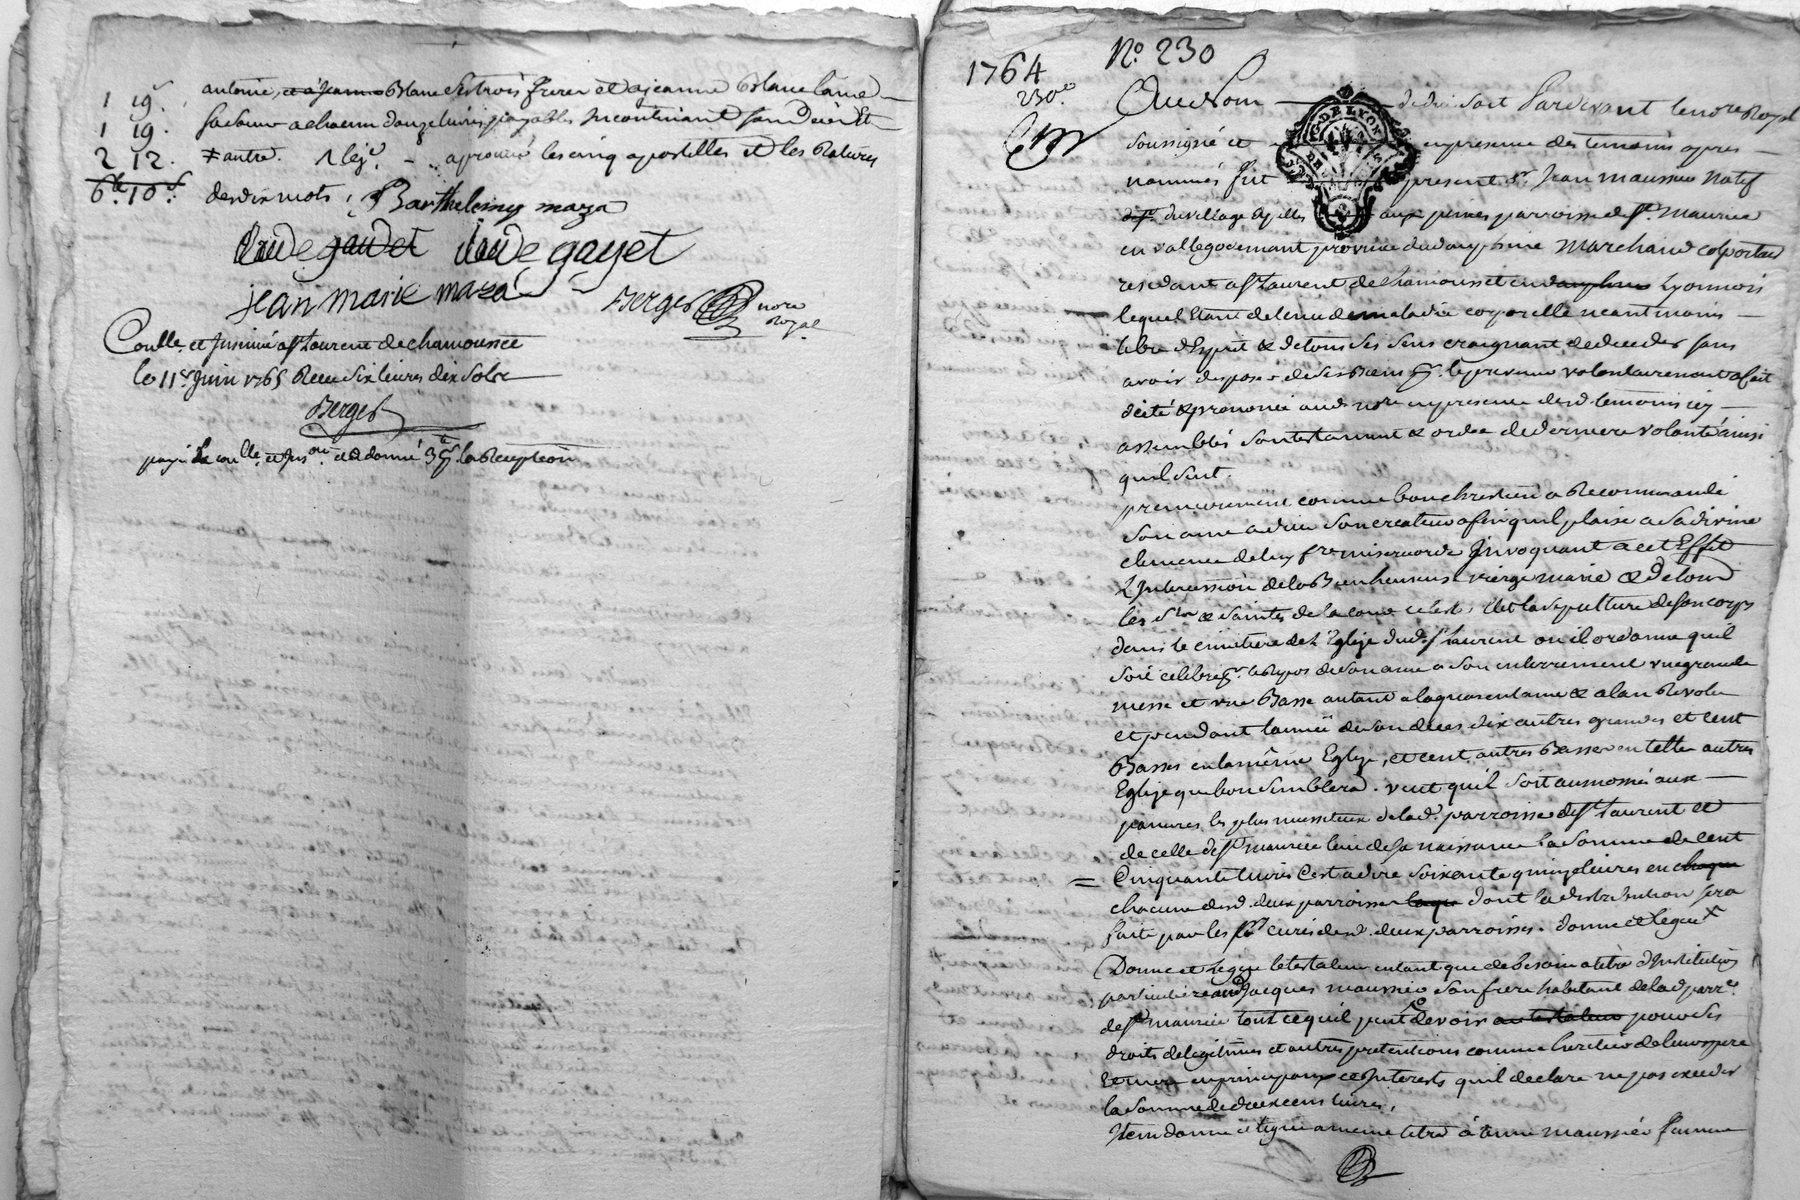 antoine, et à jeanne Blanc ses trois freres et a jeanne Blanc
sa soeur a chacun douze livres payables incontinant
1 19
1 19.
2 12.
6lt. 10s.
≠ autre. 1 lég.e aprouvé les cinq apostilles et les Ratures
de dix mots, Barthelemy maza
Claude gaudet Claude gayet
jean marie maza Berger nore Royal
Conllé et Insinué a st Laurent de chamousset
le 11e juin 1765 Receu six livres dix sols
Berger
payé Le conlle. et Ins.on et donné 3lt la Reception
1764 No. 230
230e.
Au Nom de dieu soit Pardevant le nore Royal
G. DE LYON
soussigné et en presence des temoins apres
nommés fut present sr. Jean maussier Natif
du village aux pines parroisse de st. maurice
en vallegodemant province de dauphiné marchand colporteur
residant a st Laurent de chamousset en dauphine Lyonnois
lequel Etant detenu de maladie corporelle neantmoins
libre d'Esprit & de tous ses sens craignant de deceder sans
avoir disposé de ses Biens volontairement a fait
dicté & prononcé aud. nore en presence desd. temoins icy
assemblés son testament & ordre de derniere volonté ainsi
quil suit.
premierement comme bon chrestien a Recommandé
son ame a dieu son createur afin quil plaise a sa divine
clemence de luy fre misericorde Invoquant a cet Effet
L'Intercession de la Bienheureuse vierge marie & de tous
les Sts & saintes de la cour celeste, Elit la sepulture de son corps
dans le cimetiere de L'Eglise dud. st Laurent ou il ordonne quil
soit celebré pr. le Repos de son ame a son enterrement une grande
messe et une Basse autant a la quarantaine & a lan Revolu
et pendant l'année de son deces dix autres grandes et cent
Basses en la même Eglise, et cent autres Basses en telle autres
Eglise que bon semblera. veut qu'il soit aumosné aux
pauvres les plus necessiteux de lad. parroisse de st Laurent et
de celle de st maurice lieu de sa naissance la somme de cent
= Cinquante livres C'est a dire soixante quinze livres en chaque
chacune desd. deux parroisses laque dont la distribution sera
faite par les srs curés desd. deux parroisses. donne et legue
Donne et Legue le testateur en tant que de besoin a titre d'Institution
particuliere aud. Jacques maussier son frere habitant de lad. parre.
de st maurice tout ce quil peut devoir au testateur pour ses
droits de legitimes et autres pretentions comme heritier de leurs pere
Et mere en principaux et Interests quil declare ne pas exceder
la somme de deux cens livres,
Item donne et legue a meme titre à maussier femme